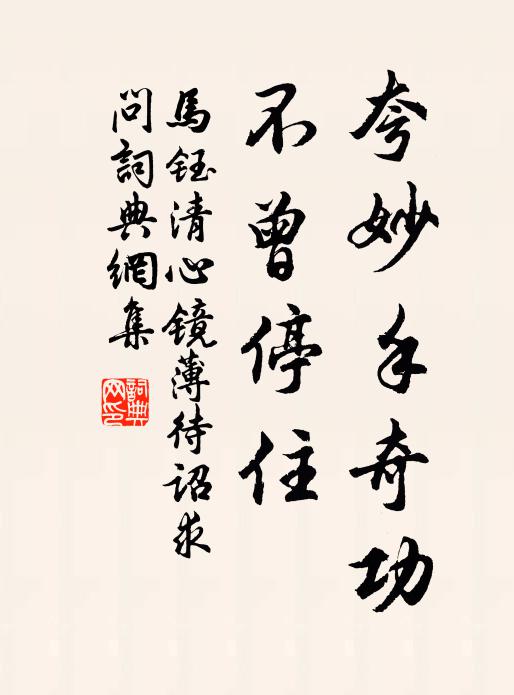 夸妙手奇功
不曾停住
馬鈺清心镜薄待詔求
問詞典網集
詞典网印